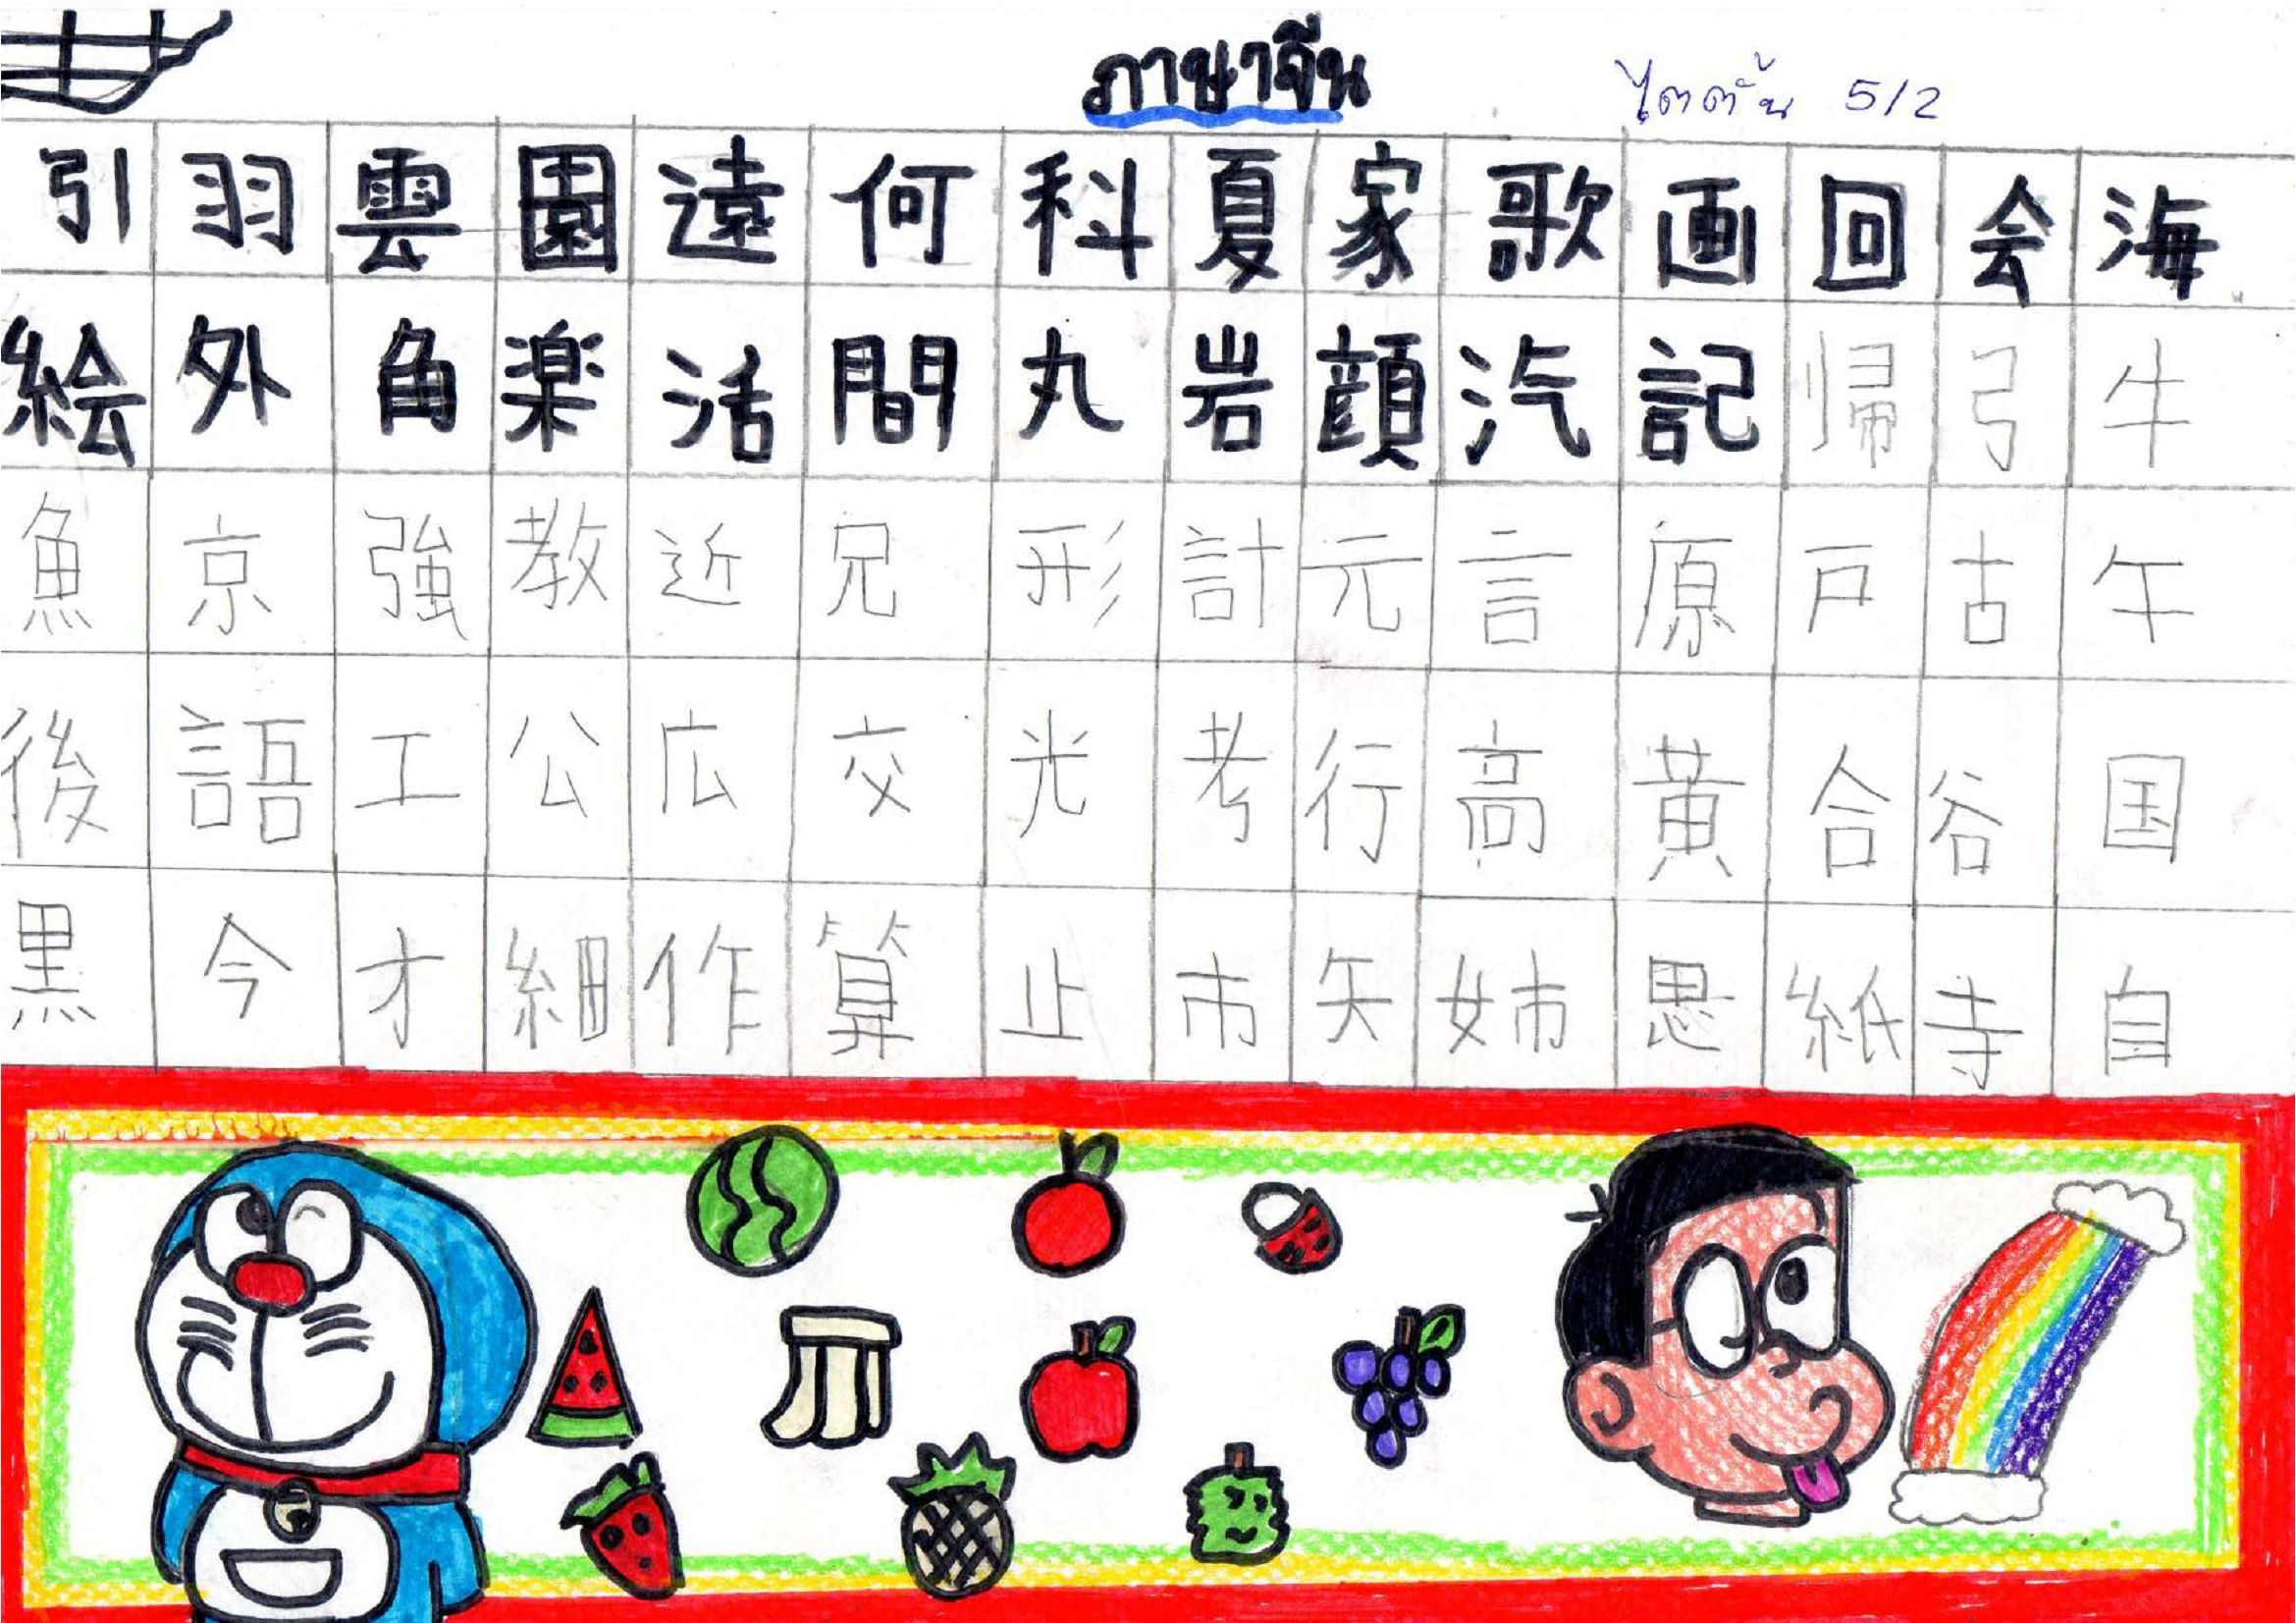 ภาษาจีน
ไตตั้น 5/2
引 羽 雲 園 遠 何 科 夏 家 歌 画 回 会 海
絵 外 角 楽 活 間 丸 岩 顔 汽 記 帰 弓 牛
魚 京 強 教 近 兄 形 計 元 言 原 戸 古 午
後 語 工 公 広 交 光 考 行 高 黄 合 谷 国
黒 今 才 細 作 算 止 市 矢 姉 思 紙 寺 自